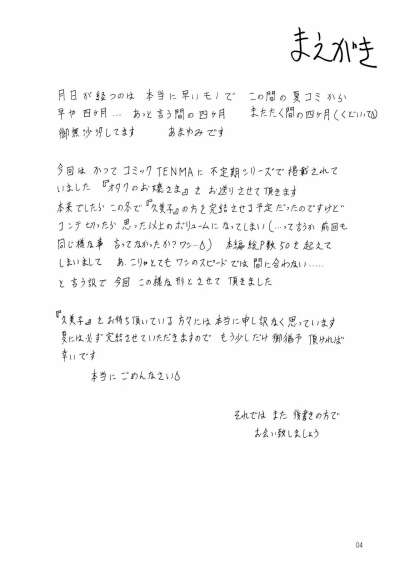 まえがき
月日が経つのは 本当に早いモノで この間の夏コミから
早や四ヶ月… あっと言う間の四ヶ月 またたく間の四ヶ月(くどいって💧)
御無沙汰してます あまゆみです
今回は かつてコミックTENMAに不定期シリーズで掲載されて
いました 『オタクのお嬢さま』を お送りさせて頂きます
本来でしたら この冬で『久美子』の方を完結させる予定だったのですけど
コンテ切ったら思った以上のボリュームになってしまい(…って言うか前回も
同じ様な事 言ってなかったか?ワシ…💧) 本編総P数50を超えて
しまいまして あ、こりゃとてもワシのスピードでは間に合わない……
と言う訳で今回 この様な形とさせて頂きました
『久美子』をお待ち頂いている方々には本当に申し訳なく思っています
夏には必ず完結させていただきますので もう少しだけ御猶予 頂ければ
幸いです
本当に ごめんなさい💧
それでは また 後書きの方で
お会い致しましょう
04